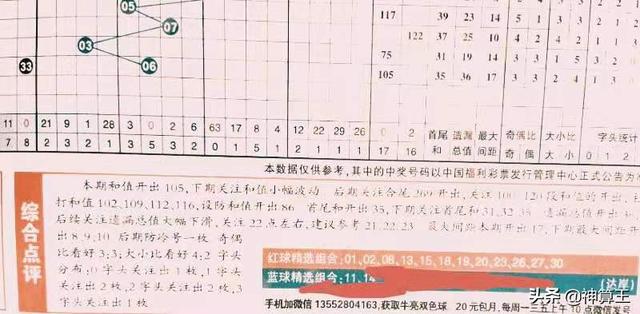 05
07
03
06
33
117 39 23 10 5 3
122 37 25 10 3 3
75 31 19 14 3 3
105 35 36 17 3 3
11 0 21 9 1 28 3 0 2 6 63 17 8 4 12 22 29 26 0 2
7 8 17 16
首尾和 遗漏总值 最大间距 奇偶比 大小比 字头统计
0 1 2
本数据仅供参考,其中的中奖号码以中国福利彩票发行管理中心正式公告为
综合点评
本期和值开出105,下期关注和值小幅波动
打和值102、109、112、116,设防和值开出86 首尾和开出35,下期关注首尾和31、32、35
后续关注遗漏总值大幅下滑,关注22点左右,建议参考21、22、23 最大间距本期开出17,下期最大间距开
出8、9、10 后期防冷号一枚 奇偶
比看好3:3;大小比看好4:2 字头
分布:0字头关注出1枚,1字头
关注出2枚,2字头关注出2枚,3
字头关注出1枚
红球精选组合:01、02、08、13、15、18、19、20、23、26、27、30
蓝球精选组合:11、14
(达岸)
手机加微信 13552804163,获取牛亮双色球 20元包月,每周一三五上午10点微信发号
头条@神算王